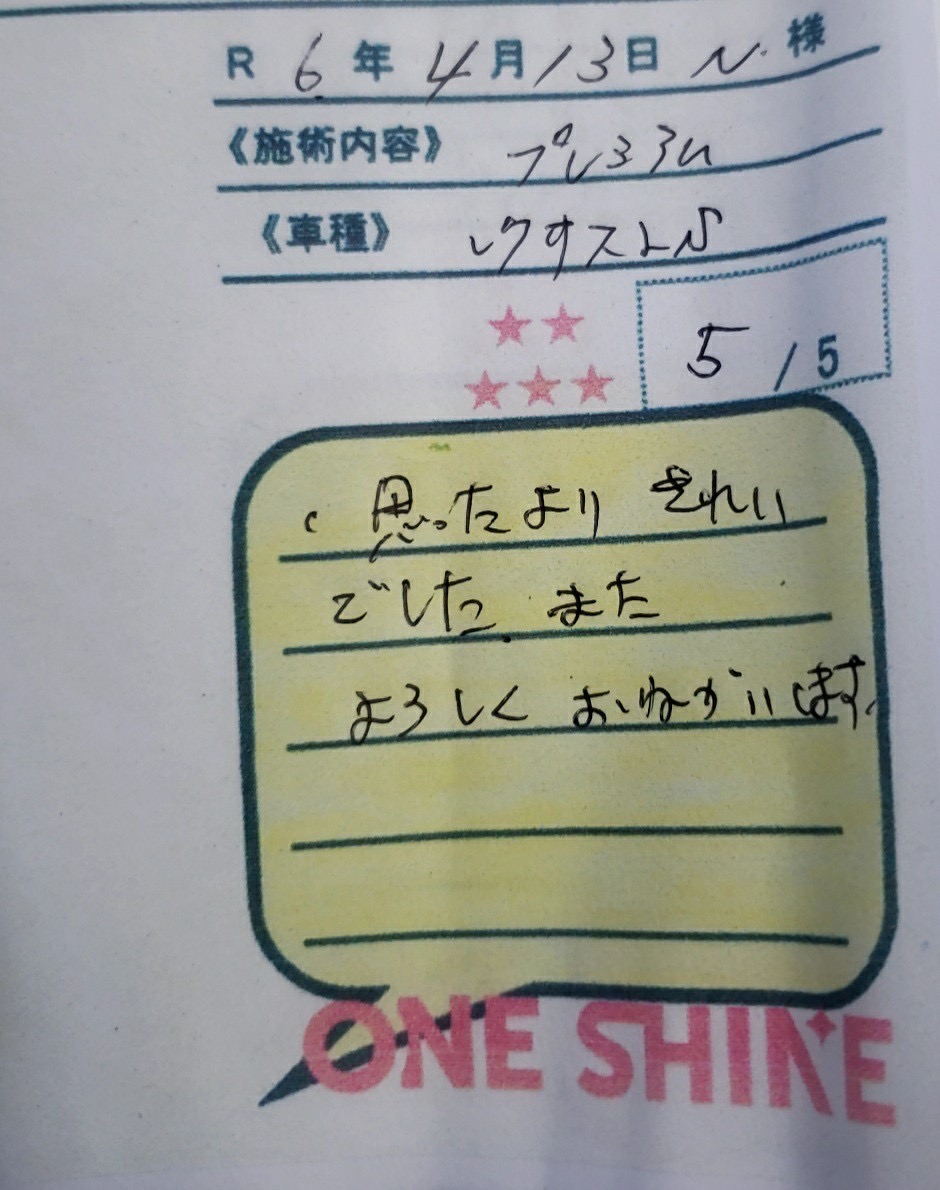 R 6年4月13日 N.様
《施術内容》 プレミアム
《車種》
★★
★★★
5/5
思ったより きれい
でした。また
よろしく おねがいします。
ONE SHINE